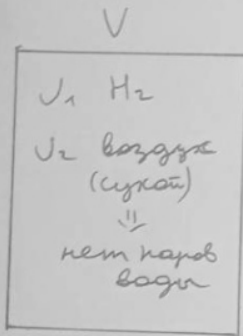 V
ν₁ H₂
ν₂ воздух
(сухой)
⇓
нет паров
воды